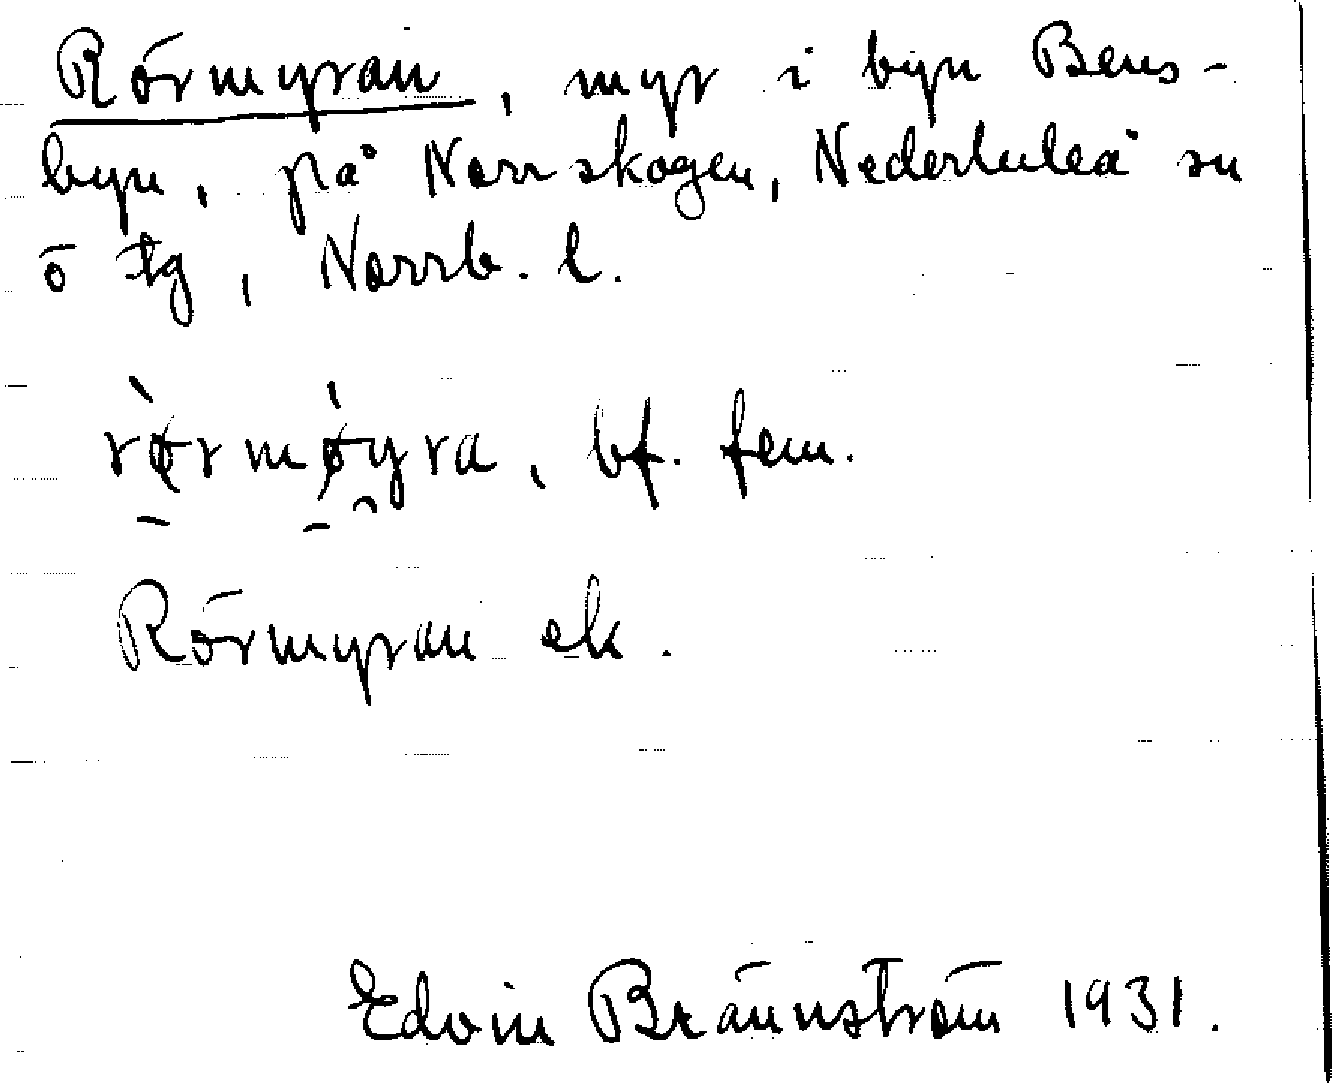 Rörmyran, myr i byn Bens-
byn, på Norrskogen, Nederluleå sn
o tg, Norrb. l.
rø̀rmǿyra, bf. fem.
Rörmyran ek.
Edvin Brännström 1931.